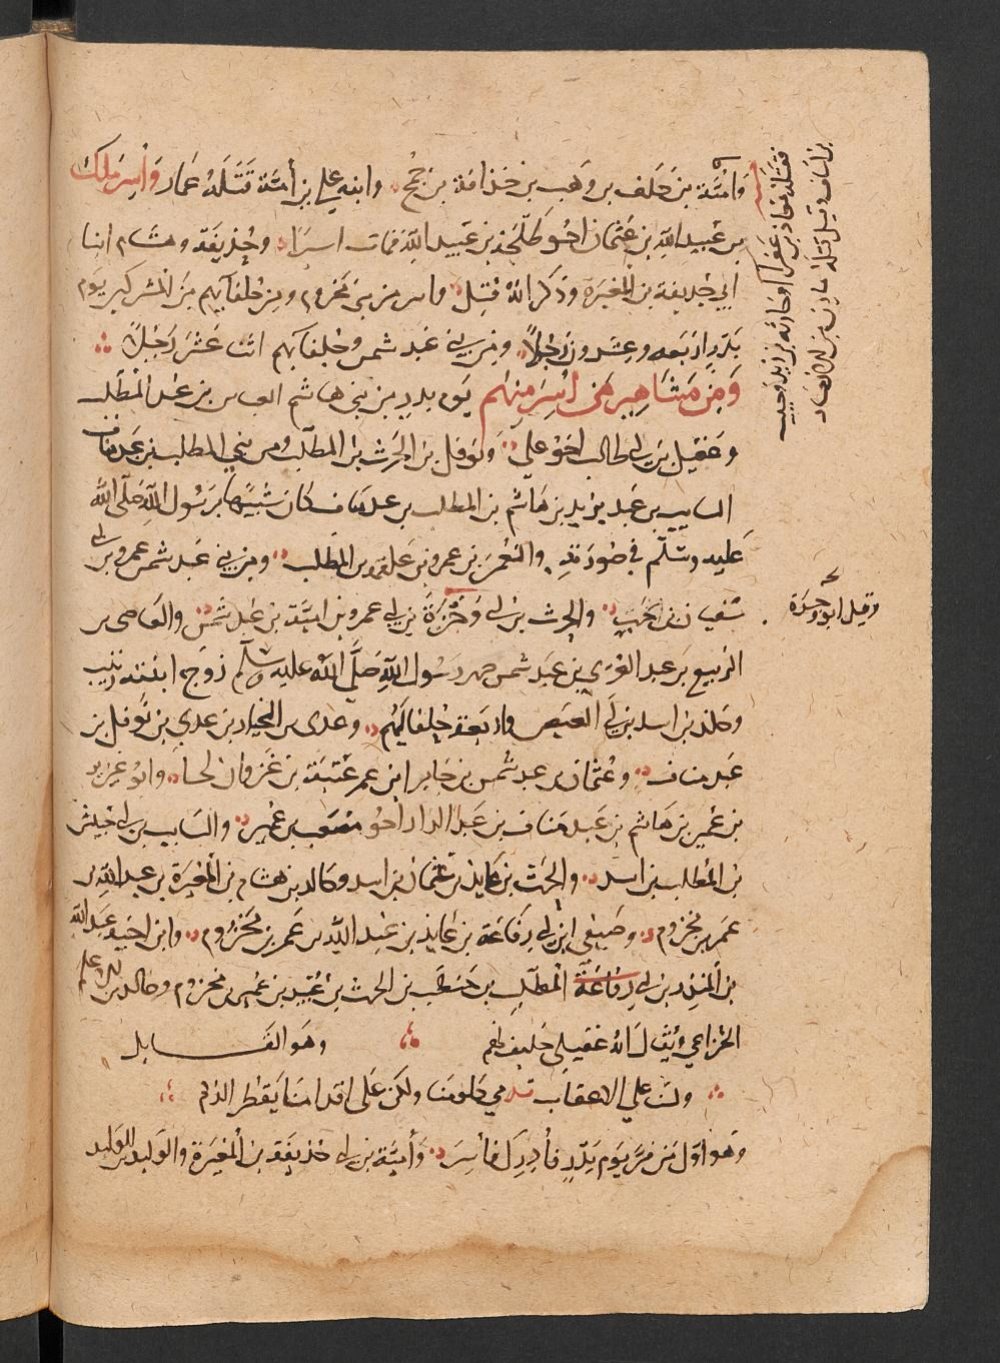 وأمية بن خلف بن وهب بن حذافة بن جمح وابنه علي بن أمية قتله عمار وأسر ملك
بن عبيد الله بن عثمان اخو طلحة بن عبيد الله فمات اسيرا وحذيفة وهشام ابنا
ابي حذيفة بن المغيرة وذكر انه قتل واسر من بني مخزوم ومن حلفايهم من المشركين يوم
بدر اربعه وعشرون رجلا ومن بني عبد شمس وحلفايهم اثنا عشر رجلا
ومن مشاهير من أسر منهم يوم بدر من بني هاشم العباس بن عبد المطلب
وعقيل بن ابي طالب اخو علي ونوفل بن الحرث بن المطلب ومن بني المطلب بن عبد مناف
السايب بن عبد يزيد بن هاشم بن المطلب بن عبد مناف كان شبيها برسول الله صلى الله
عليه وسلم في صورته والنعمن بن عمرو بن علقمة بن المطلب ومن بني عبد شمس عمرو بن ابي
سفيان بن حرب والحرث بن ابي وحرة بن ابي عمرو بن امية بن عبد شمس والعاصي بن
الربيع بن عبد العزى بن عبد شمس صهر رسول الله صلى الله عليه وسلم زوج ابنته زينب
وخلد بن اسد بن ابي العيص واربعة حلفا لهم وعدى بن الخيار بن عدي بن نوفل بن
عبد مناف وعثمان بن عبد شمس بن جابر ابن عم عتبة بن غزوان وابو عزيز
بن عمير بن هاشم بن عبد مناف بن عبد الدار اخو مصعب بن عمير والسايب بن ابي حبيش
بن المطلب بن اسد والحرث بن عايذ بن عثمان بن اسد وخالد بن هشام بن المغيرة بن عبد الله بن
عمر بن مخزوم وصيفي ابن ابي رفاعة بن عايذ بن عبد الله بن عمر بن مخزوم وابن اخيه عبد الله
بن المنذر بن ابي رفاعة المطلب بن حنطب بن الحرث بن عبيد بن عمر بن مخزوم وخالد بن الاعلم
الخزاعي ويقال انه عقيلي حليف لهم وهو القايل
ولسنا على الاعقاب تدمي كلومنا ولكن على اقدامنا يقطر الدم
وهو اول من فر يوم بدر فأدرك فأسر وأمية بن ابي حذيفة بن المغيرة والوليد بن الوليد
فقتله معاذ بن عفرا وخارثة بن زيد وحبيب
بن اساف وقيل قتله مازن من الانصار
وقيل ابو وجزة